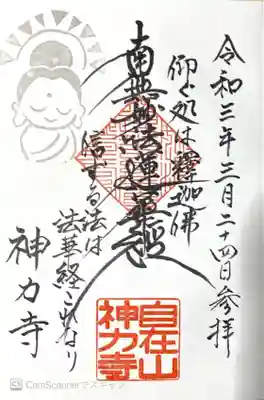 令和三年三月二十四日参拝
仰ぐ処は釋迦佛
南無妙法蓮華経
信ずる法は
法華経これなり
神力寺
自在山
神力寺
CamScannerでスキャン